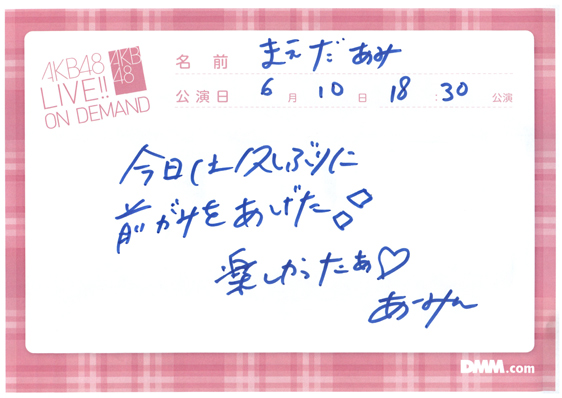 AKB48
LIVE!!
ON DEMAND
AKB
48
名前 まえだ あみ
公演日 6月 10日 18:30公演
今日は久しぶりに
前がみをあげた
楽しかったぁ♡
あーみん
DMM.com